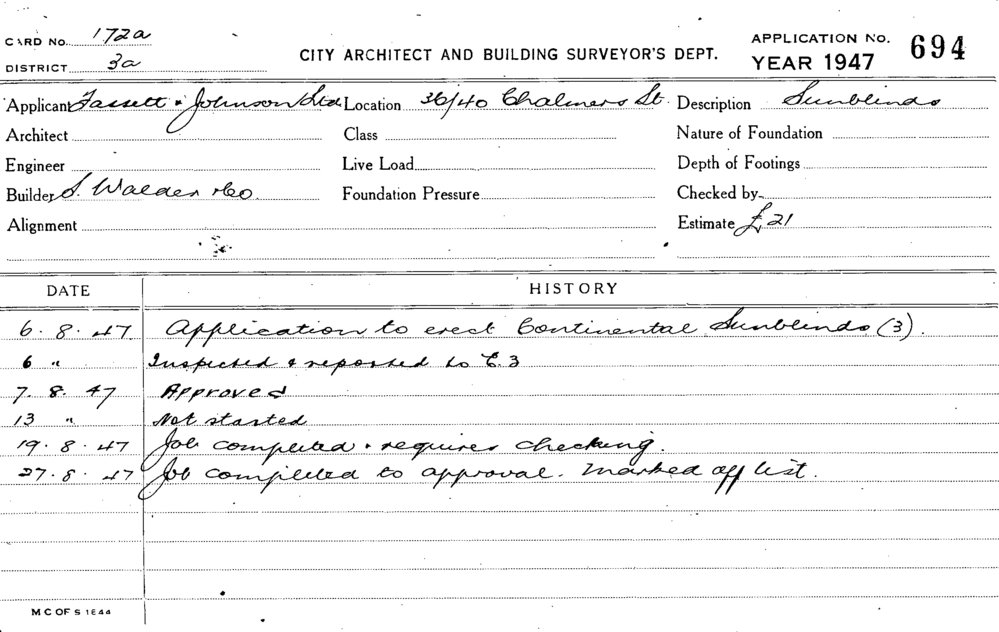 CARD No. 172a
DISTRICT 3a
CITY ARCHITECT AND BUILDING SURVEYOR'S DEPT.
APPLICATION No. 694
YEAR 1947
Applicant Fassett & Johnson Ltd Location 36/40 Chalmers St. Description Sunblinds
Architect Class Nature of Foundation
Engineer Live Load Depth of Footings
Builder S. Walder & Co. Foundation Pressure Checked by
Alignment Estimate £21
DATE HISTORY
6.8.47 Application to erect Continental Sunblinds (3).
6 " Inspected & reported to E.3
7.8.47 Approved
13 " Not started
19.8.47 Job completed & requires checking.
27.8.47 Job completed to approval. Marked off list.
M C OF S 1844